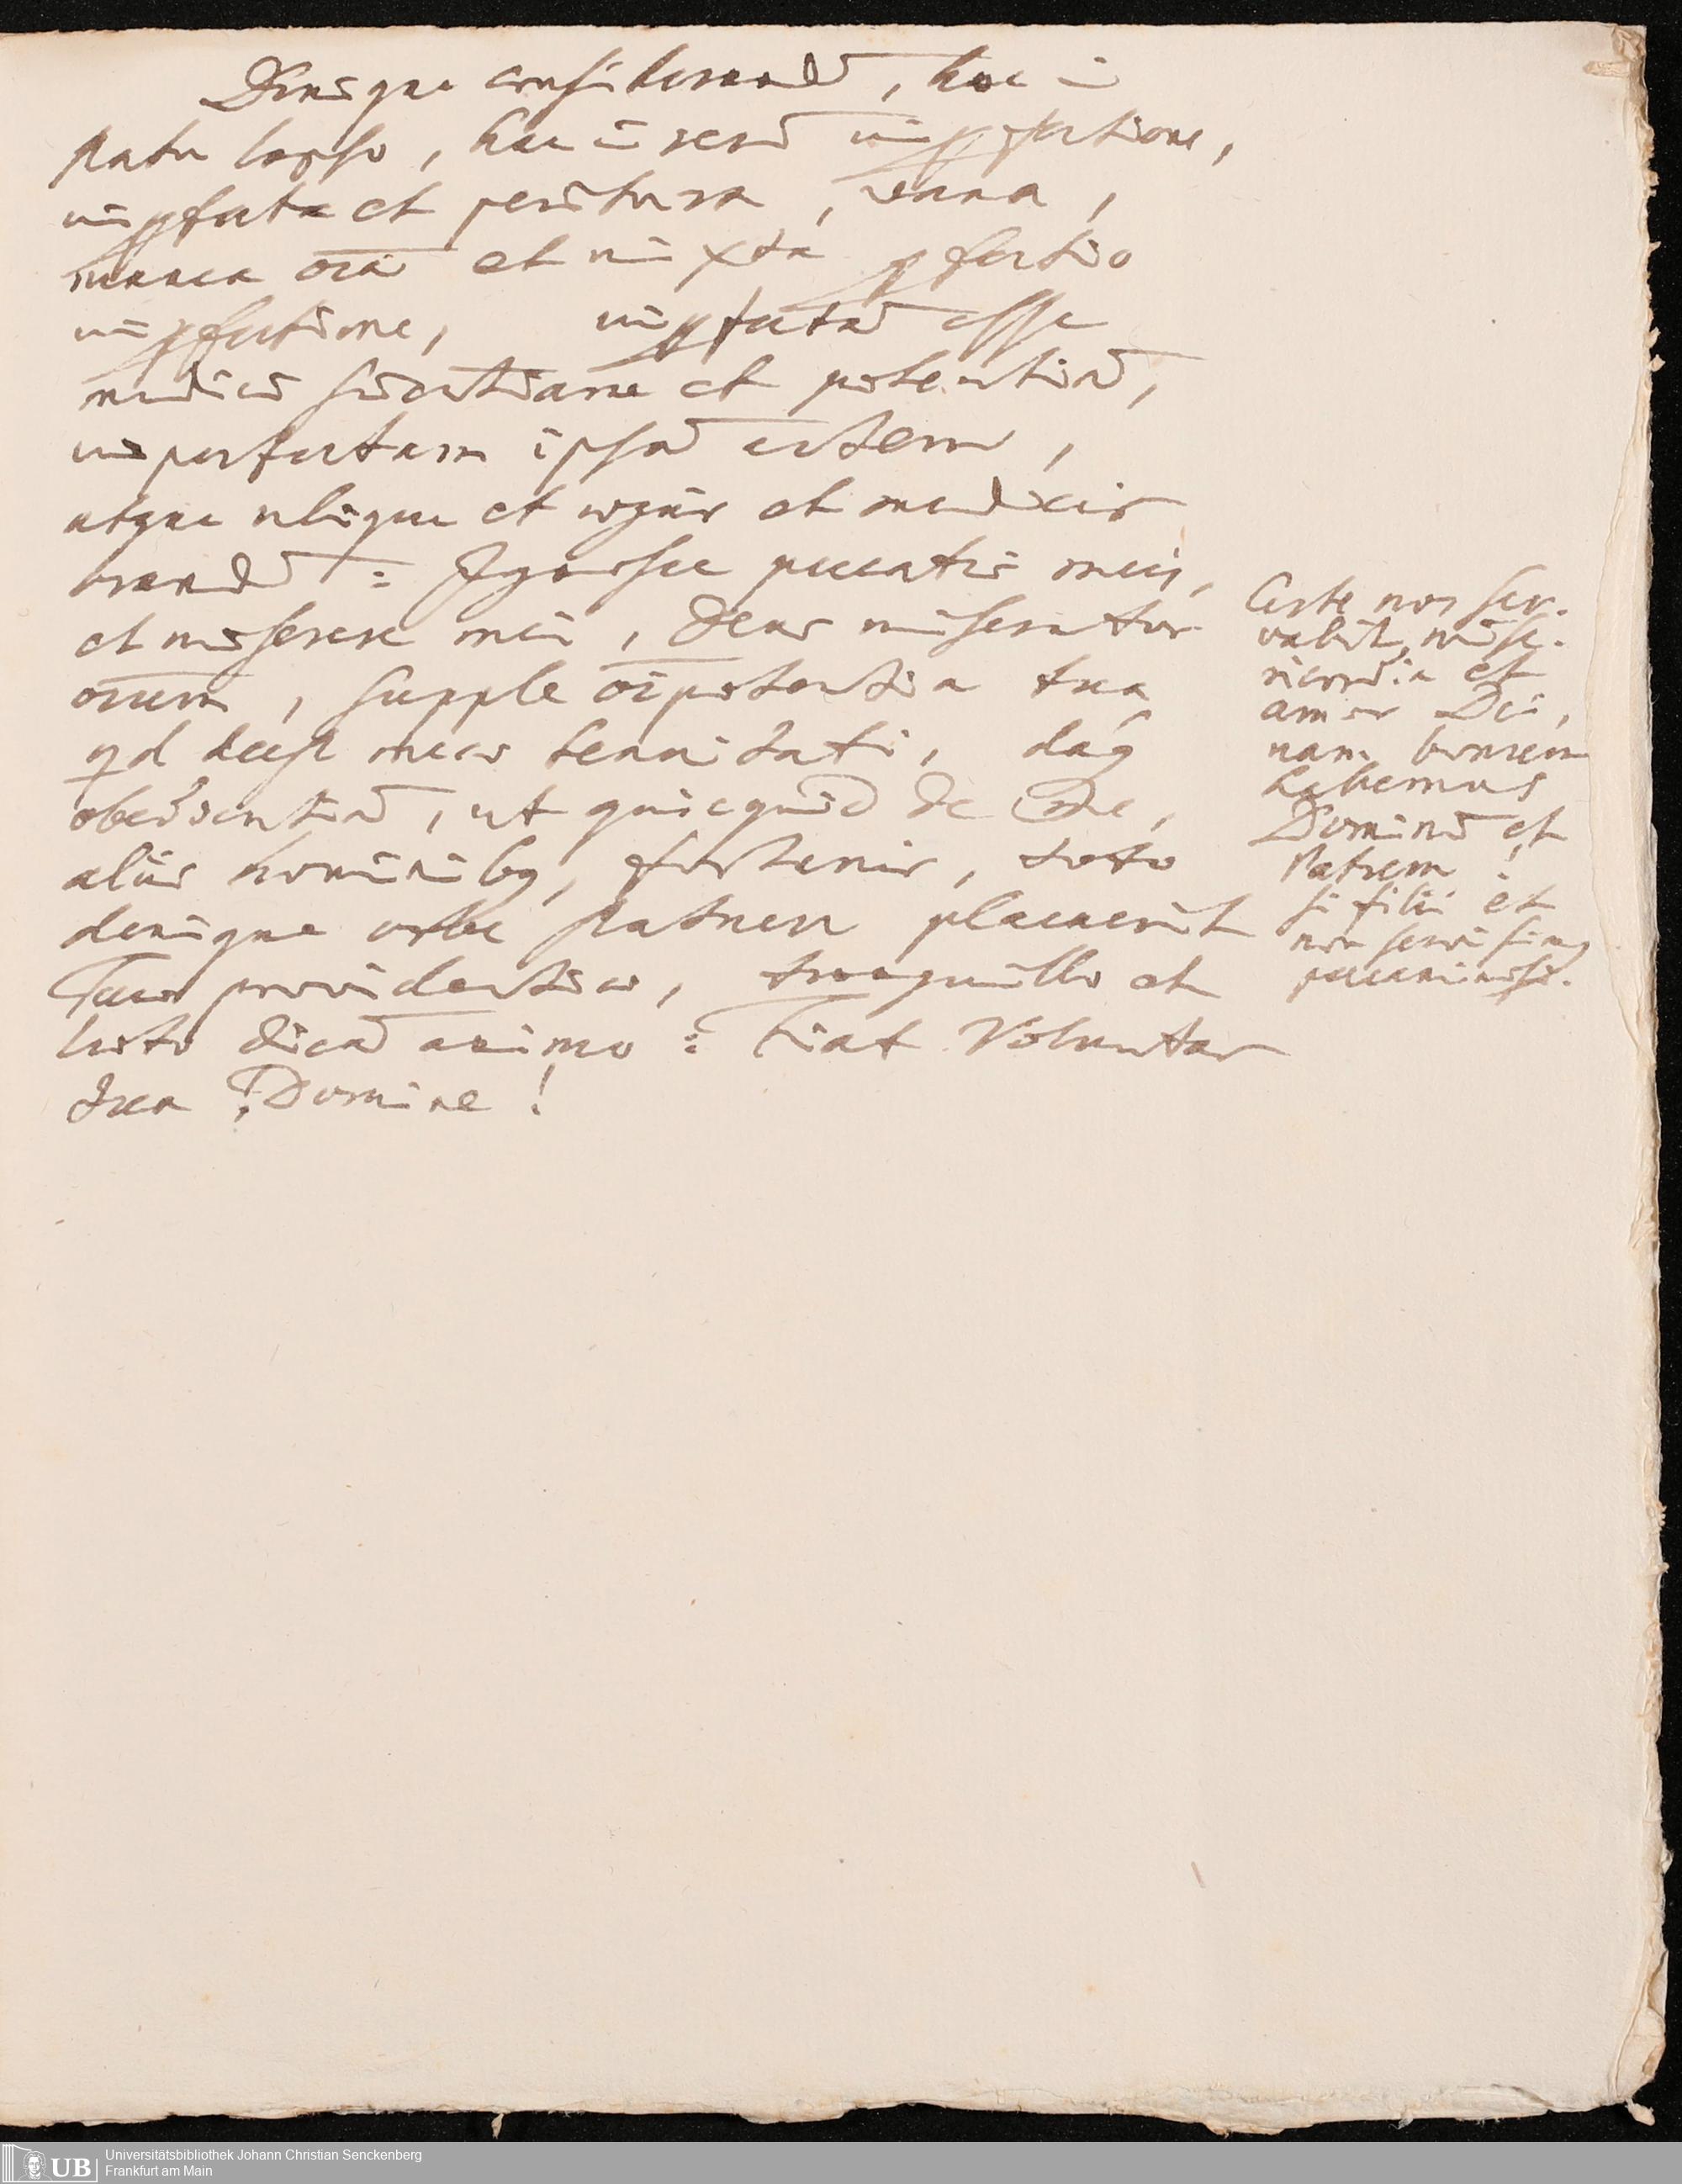 Denique considerand̄, hac ī
statu lapso, hac ī rerū imperfectione,
imperfecta et peritura, vana,
manca oīa et mixta perfectio
imperfectione, imperfectā esse
medici scientiam et potentiā,
imperfectam ipsā artem,
atque ubique et aegris et medicis
orand̄: Ignosce peccatis meis,
et miserere mei, Deus miserator
oīum, supple oīpotentia tua
qd deest meae tenuitati, daq
obedientiā, ut quicquid de me,
aliis hominibq, fortunis, toto
denique orbe statuere placuerit
Tuae providentiae, tranquillo et
laeto dicā animo: Fiat Voluntas
tua, Domine!
Certe nos ser-
vabit, mise-
ricordia et
amor Dei,
nam bonum
habemus
Dominū et
Patrem!
si filii et
non servi simq
peccaminosi.
Universitätsbibliothek Johann Christian Senckenberg
Frankfurt am Main
UB